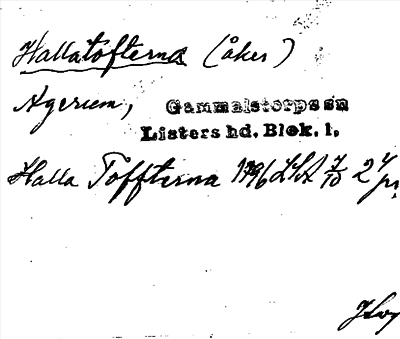 Hallatofterna (åker)
Agerum, Gammalstorps sn
Listers hd. Blek. l.
Halla Töffterna 1796 LSA 7/10 24